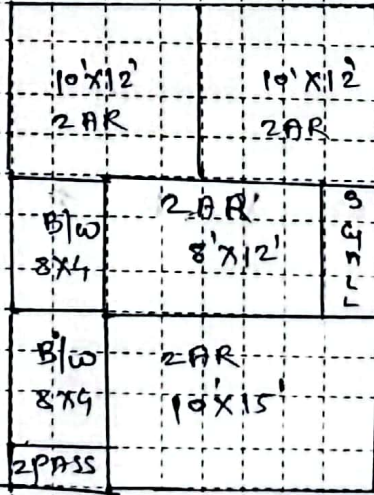 10'X12'
2AR
10'X12'
2AR
B/W
8X4
2AR'
8'X12'
B/W
8X4
2AR
10'X15'
2PASS